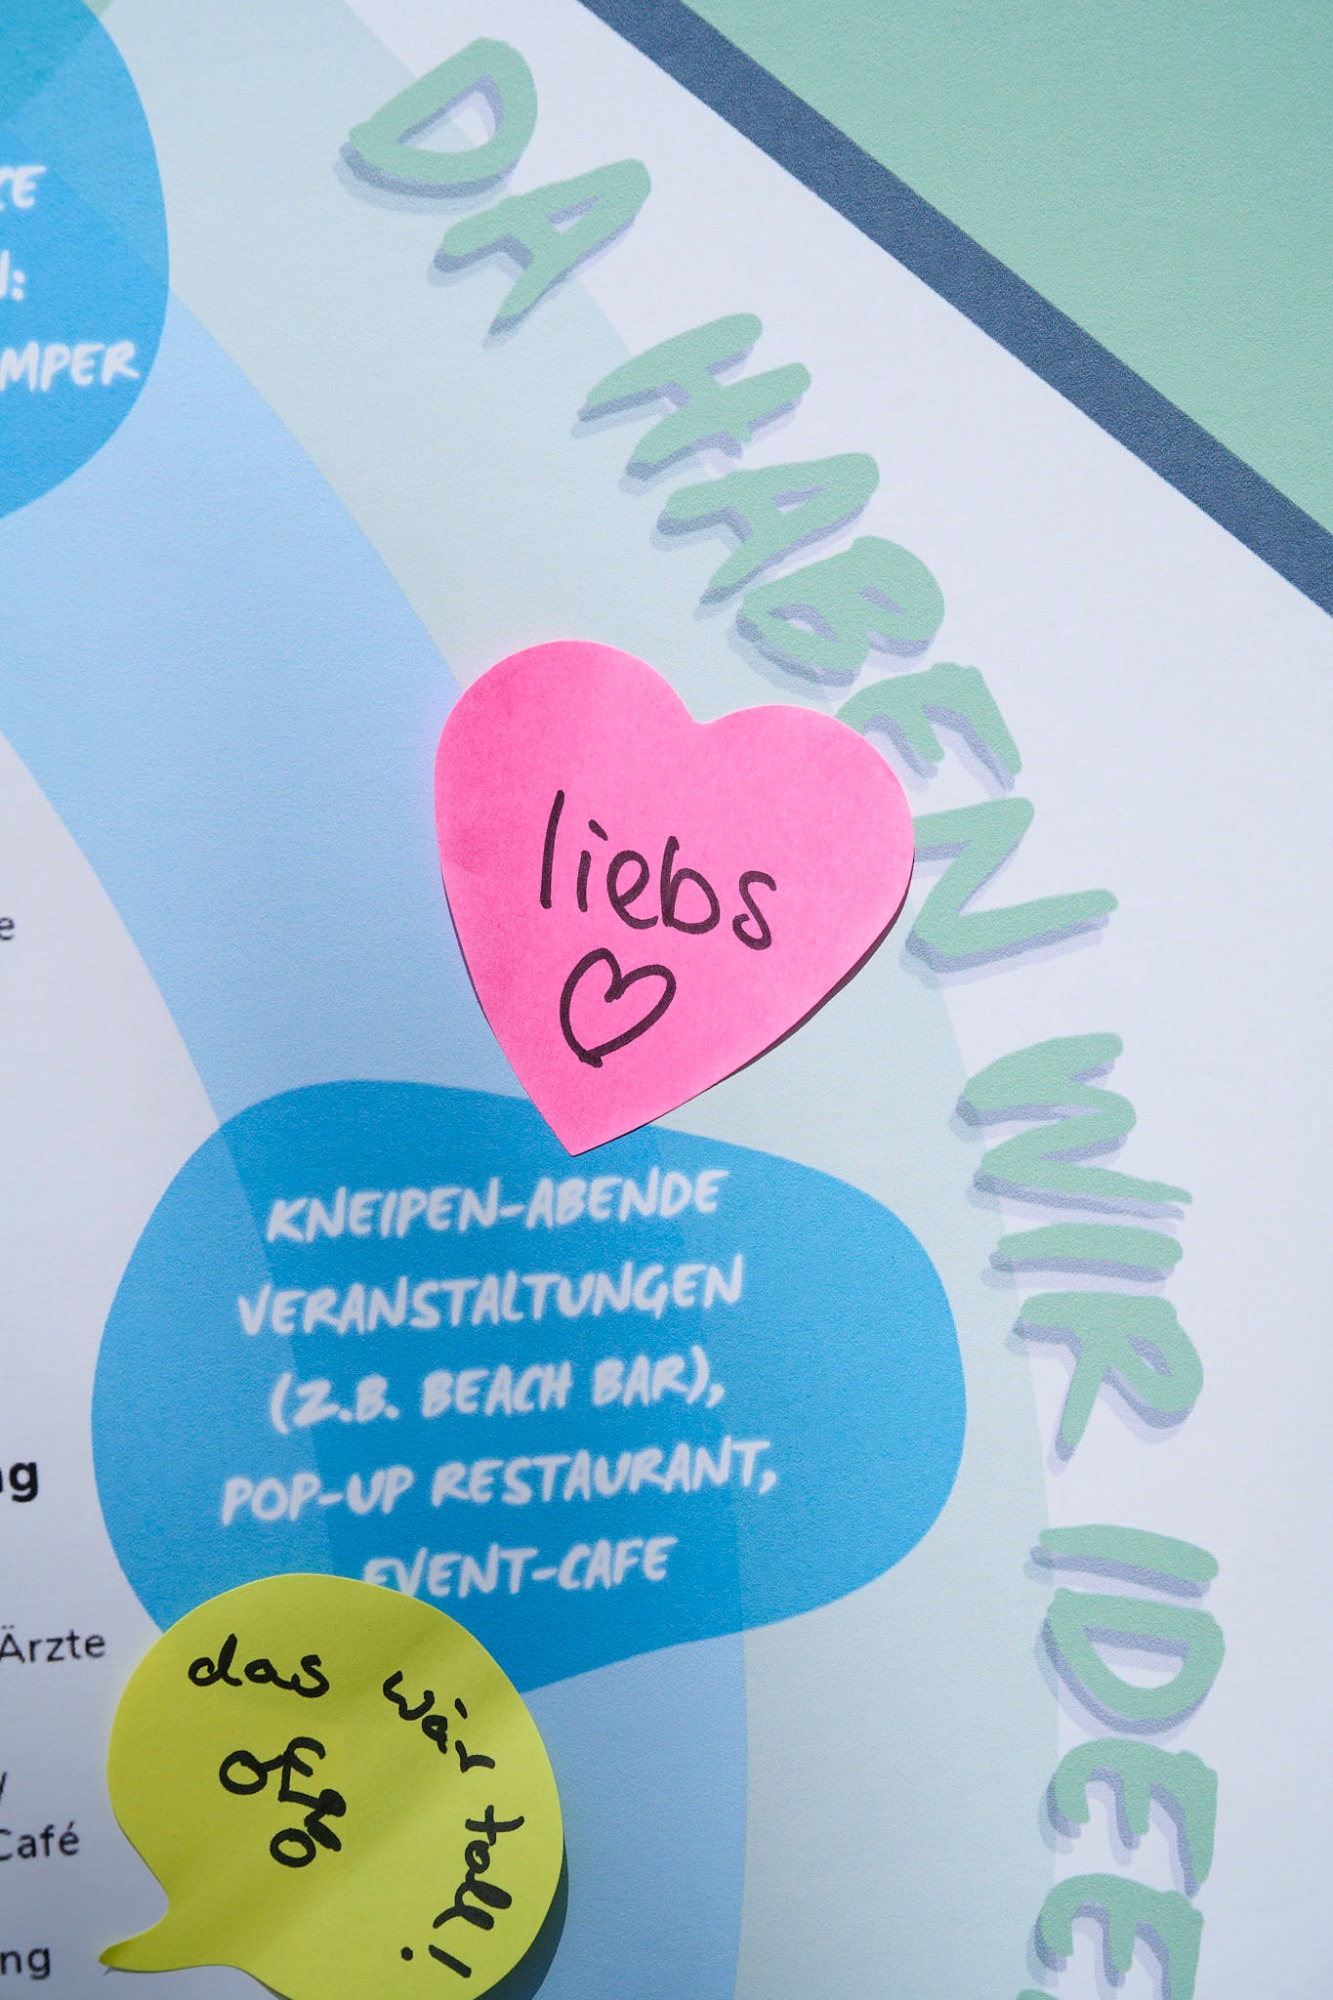 DA HABEN WIR IDEE
CE
N:
MPER
liebs
KNEIPEN-ABENDE
VERANSTALTUNGEN
(Z.B. BEACH BAR),
POP-UP RESTAURANT,
EVENT-CAFE
das wär toll!
e
ng
Ärzte
Café
ng